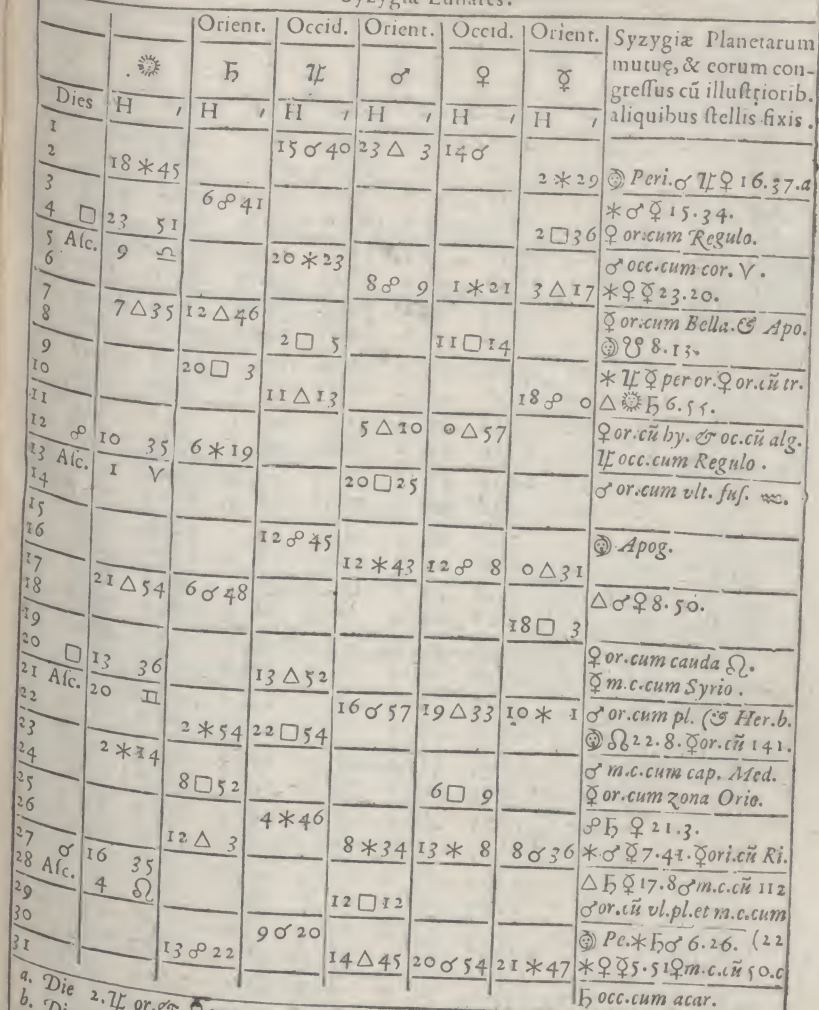 Syzygiæ Lunares.
Orient. | Occid. | Orient. | Occid. | Orient. | Syzygiæ Planetarum
☉ | ♄ | ♃ | ♂ | ♀ | ☿ | mutuę, & eorum con-
greſſus cũ illuſtriorib.
Dies | H ′ | H ′ | H ′ | H ′ | H ′ | H ′ | aliquibus ſtellis fixis.
1
2 | 18 ⚹ 45 | | 15 ☌ 40 | 23 △ 3 | 14 ☌ | 2 ⚹ 29 | ☽ Peri. ☌ ♃ ♀ 16.37.a
3 | | 6 ☍ 41 | | | | | ⚹ ♂ ☿ 15.34.
4 □ | 23 51 | | | | | 2 □ 36 | ♀ or.cum Regulo.
5 Aſc. | 9 ♎ | | 20 ⚹ 23 | | | | ♂ occ.cum cor. ♈.
6 | | | | 8 ☍ 9 | 1 ⚹ 21 | 3 △ 17 | ⚹ ♀ ☿ 23.20.
7 | 7 △ 35 | 12 △ 46 | | | | | ☿ or.cum Bella. & Apo.
8 | | | 2 □ 5 | | 11 □ 14 | | ☽ ☋ 8.13.
9 | | 20 □ 3 | | | | | ⚹ ♃ ☿ per or. ♀ or.cũ tr.
10 | | | 11 △ 13 | | | 18 ☍ 0 | △ ☉ ♄ 6.55.
11 | | | | 5 △ 10 | 0 △ 57 | | ♀ or.cũ hy. & oc.cũ alg.
12 ☍ | 10 35 | 6 ⚹ 19 | | | | | ♃ occ.cum Regulo.
13 Aſc. | 1 ♈ | | | 20 □ 25 | | | ♂ or.cum vlt. fuſ. ♒.
14
15 | | | 12 ☍ 45 | | | | ☽ Apog.
16 | | | | 12 ⚹ 43 | 12 ☍ 8 | 0 △ 31
17 | 21 △ 54 | 6 ☌ 48 | | | | | △ ♂ ♀ 8.50.
18 | | | | | | 18 □ 3
19 | | | | | | | ♀ or.cum cauda ♌.
20 □ | 13 36 | | 13 △ 52 | | | | ☿ m.c.cum Syrio.
21 Aſc. | 20 ♊ | | | 16 ☌ 57 | 19 △ 33 | 10 ⚹ 1 | ♂ or.cum pl. (& Her.b.
22 | | 2 ⚹ 54 | 22 □ 54 | | | | ☽ ☊ 22.8. ☿ or.cũ 141.
23 | 2 ⚹ 14 | | | | | | ♂ m.c.cum cap. Med.
24 | | 8 □ 52 | | | 6 □ 9 | | ☿ or.cum zona Orio.
25 | | | 4 ⚹ 46 | | | | ☍ ♄ ♀ 21.3.
26 | | 12 △ 3 | | 8 ⚹ 34 | 13 ⚹ 8 | 8 ☌ 36 | ⚹ ♂ ☿ 7.41. ☿ ori.cũ Ri.
27 ☌ | 16 35 | | | | | | △ ♄ ☿ 17.8 ♂ m.c.cũ 112
28 Aſc. | 4 ♌ | | | 12 □ 12 | | | ♂ or.cũ vl.pl.et m.c.cum
29 | | | 9 ☌ 20 | | | | ☽ Pe. ⚹ ♄ ♂ 6.26. (22
30 | | 13 ☍ 22 | | 14 △ 45 | 20 ☌ 54 | 21 ⚹ 47 | ⚹ ♀ ☿ 5.51 ♀ m.c.cũ 50.c
31 | | | | | | | ♄ occ.cum acar.
a. Die 2. ♃ or.
b.